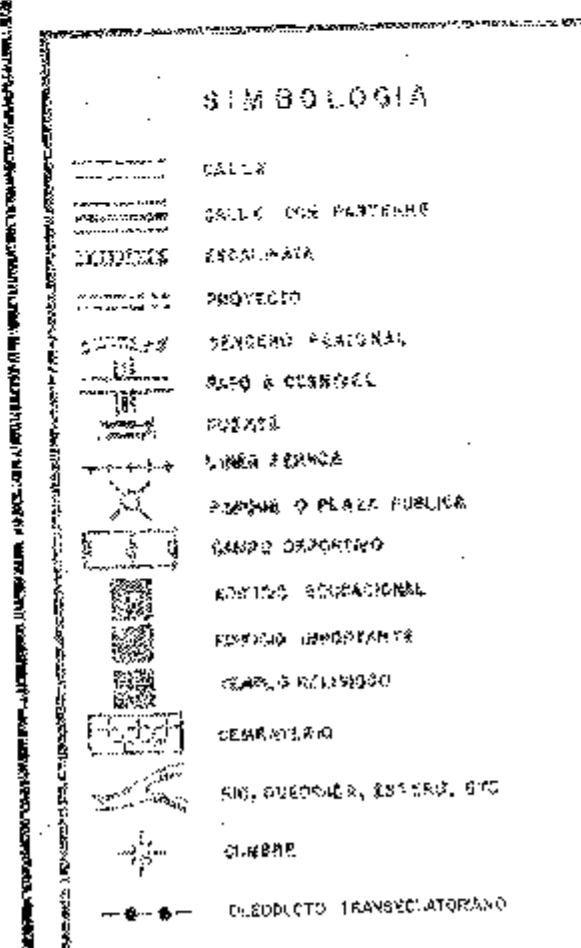 SIMBOLOGIA
CALLE
CALLE CON PARTERRE
ESCALINATA
PROYECTO
SENDERO PEATONAL
PASO A DESNIVEL
PUENTE
LINEA FERREA
PARQUE O PLAZA PUBLICA
CAMPO DEPORTIVO
EDIFICIO EDUCACIONAL
EDIFICIO IMPORTANTE
TEMPLO RELIGIOSO
CEMENTERIO
RIO, QUEBRADA, ESTERO, ETC
CUMBRE
OLEODUCTO TRANSECUATORIANO